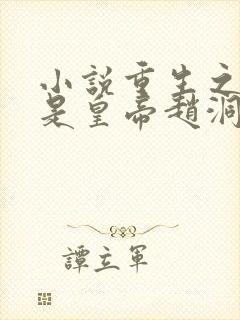 小説重生之
是皇帝趙洞
譚立軍